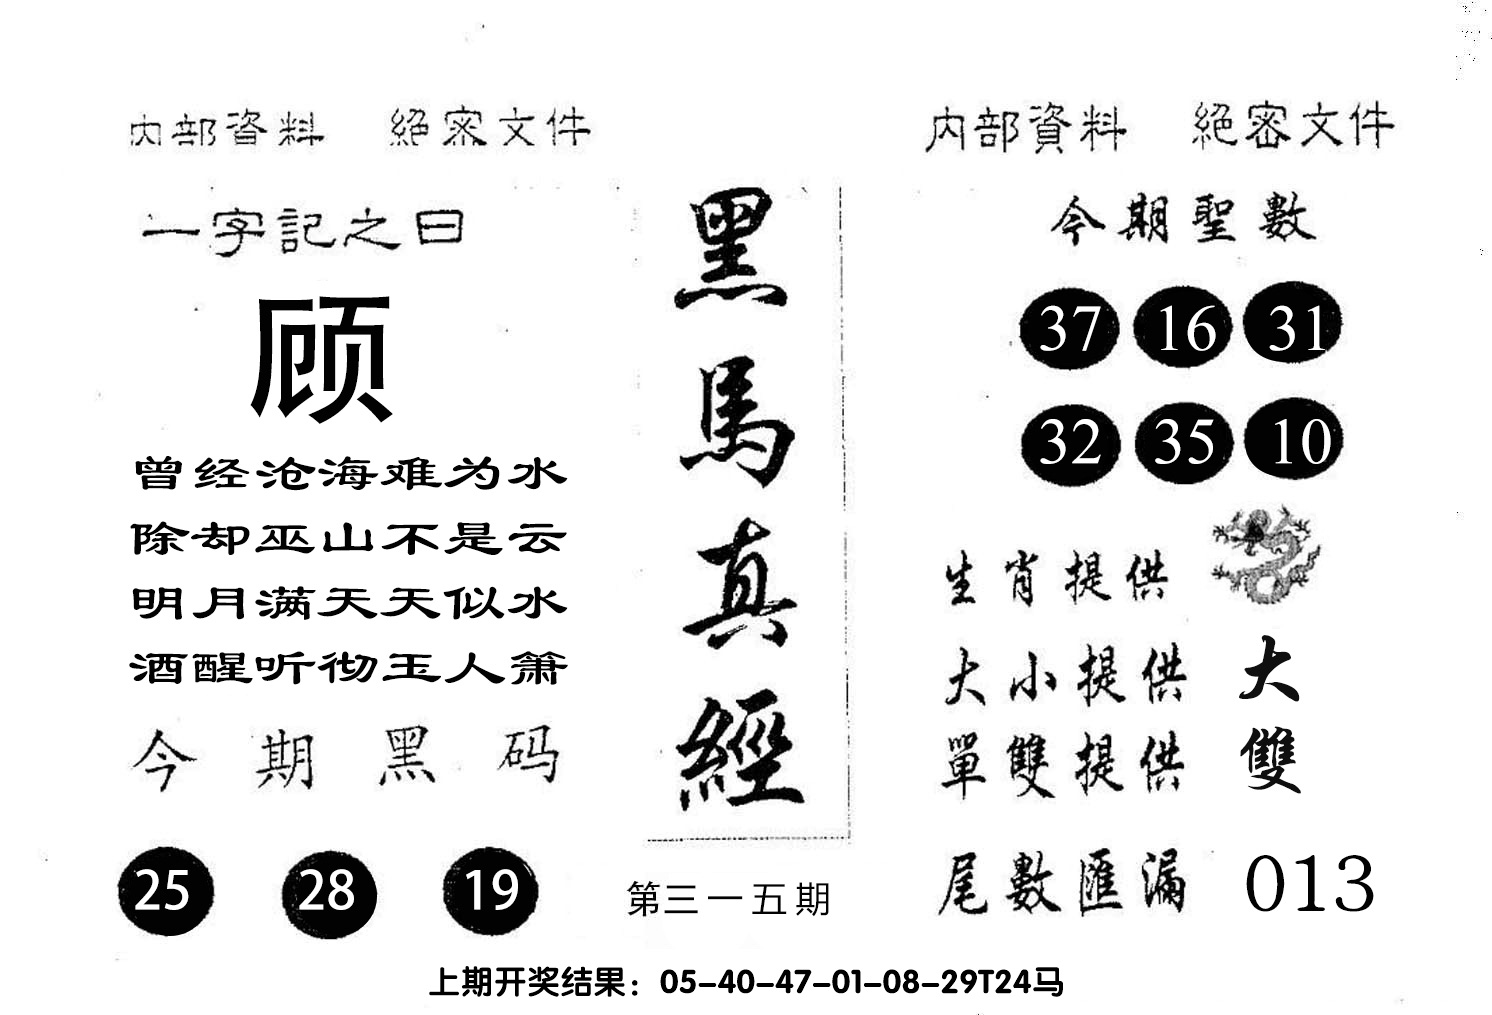 内部資料 絕密文件
一字記之曰
顾
曾经沧海难为水
除却巫山不是云
明月满天天似水
酒醒听彻玉人箫
今期黑码
25 28 19
黑馬真經
第三一五期
内部資料 絕密文件
今期聖數
37 16 31
32 35 10
生肖提供
大小提供 大
單雙提供 雙
尾數匯漏 013
上期开奖结果：05-40-47-01-08-29T24马